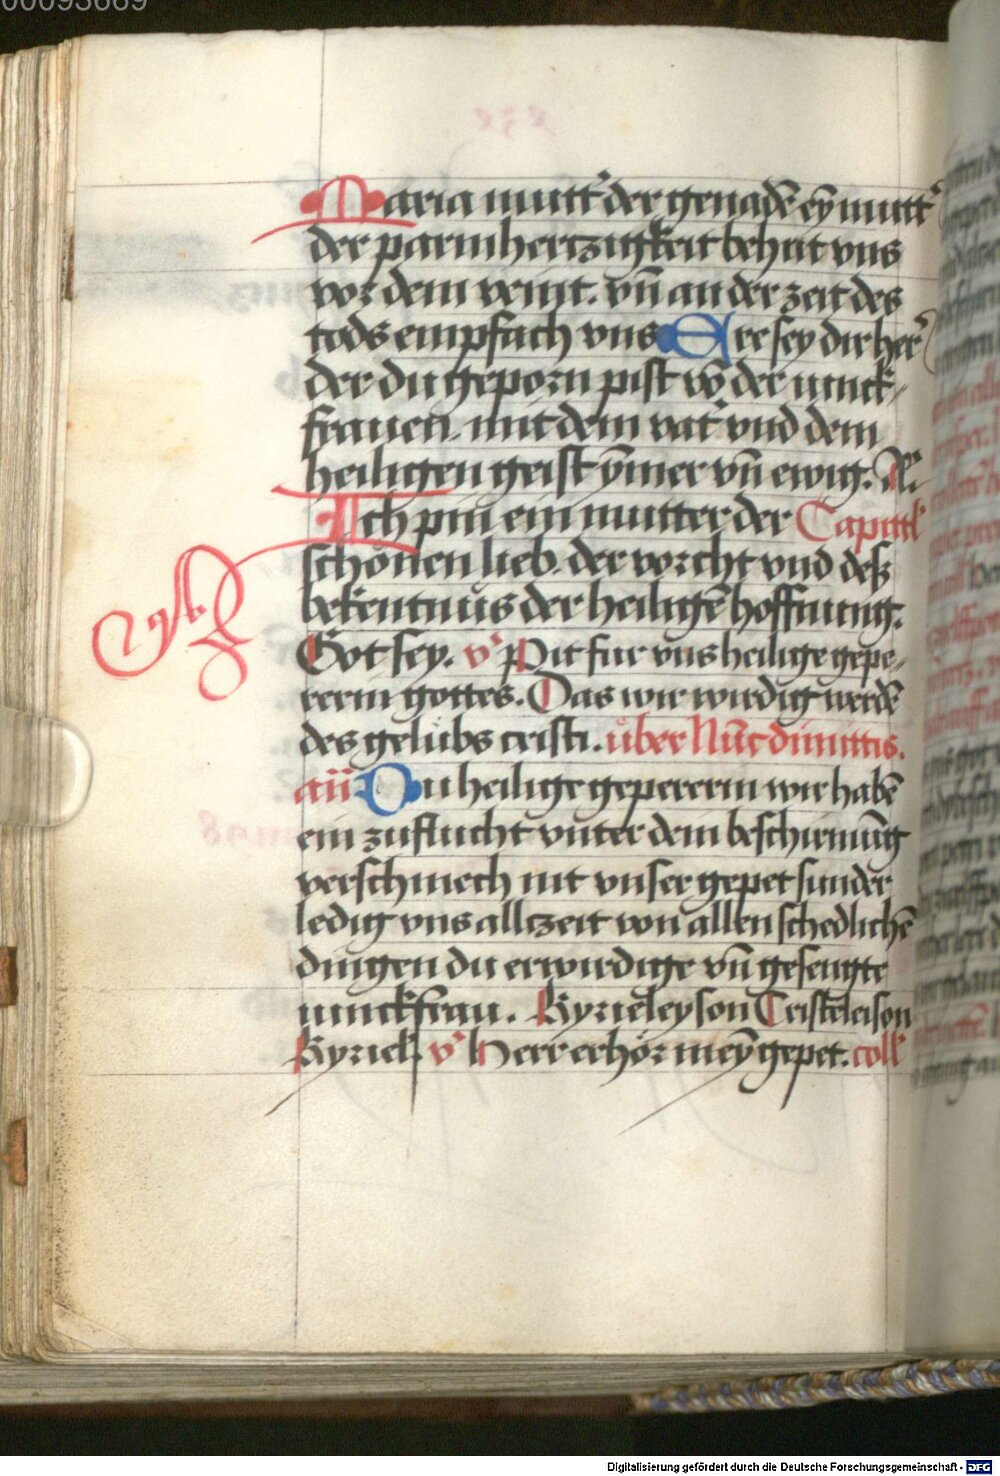 00093669
Maria mutt' der genadē eȳ mutt'
der parmhertzigkeit behut vns
vor dem veint. vn̄ an der zeit des
tods empfach vns Ere sey dir her'
der du geporn pist vō der iunck-
frauen. mit dem vat' vnd dem
heiligen geist ymer vn̄ ewig. A.
Ich pin ein mutter der Capittl'
schonen lieb. der vorcht vnd deß
bekentnus der heiligē hoffnung.
Got sey. v' Pit fur vns heilige gepe-
rerin gottes. Das wir wirdig werdē
des gelubs cristi. über Nūc dimittis.
añ Du heilige gepererin wir habē
ein zuflucht vnter dein beschirmūg
verschmech nit vnser gepet sunder
ledig vns alltzeit von allen schedlichē
dingen du erwirdige vn̄ gesengte
iunckfrau. Kyrieleyson Cristeleison
Kyriel. v' Herr erhör meȳ gepet. coll'
Digitalisierung gefördert durch die Deutsche Forschungsgemeinschaft - DFG